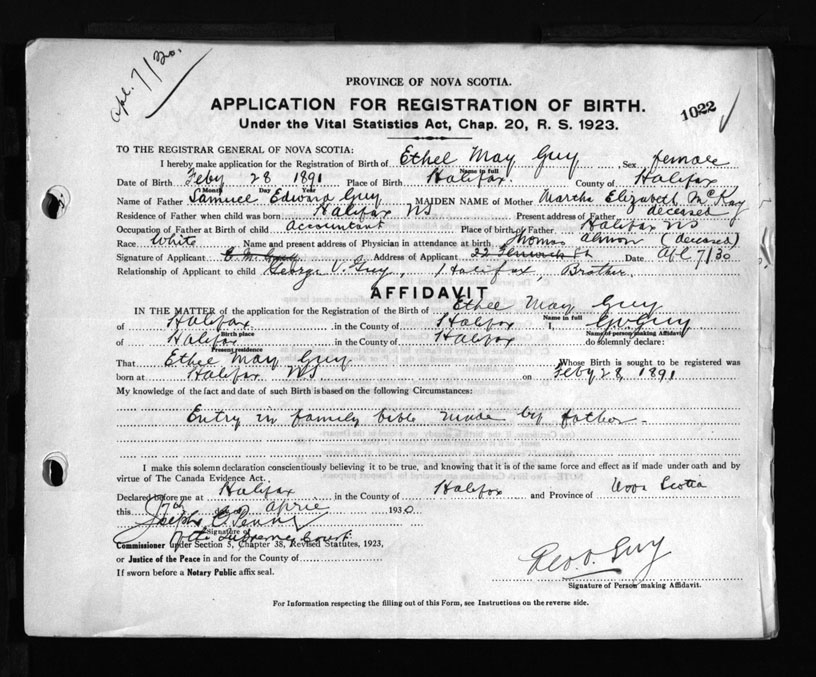 Apl. 7/30.
PROVINCE OF NOVA SCOTIA.
APPLICATION FOR REGISTRATION OF BIRTH.
1022
Under the Vital Statistics Act, Chap. 20, R. S. 1923.
TO THE REGISTRAR GENERAL OF NOVA SCOTIA:
I hereby make application for the Registration of Birth of Ethel May Guy, Sex female
Name in full
Date of Birth Feby 28 1891 Place of Birth Halifax. County of Halifax
Month Day Year
Name of Father Samuel Edward Guy MAIDEN NAME of Mother Martha Elizabeth McKay
Residence of Father when child was born Halifax NS Present address of Father deceased
Occupation of Father at Birth of child accountant Place of birth of Father Halifax NS
Race White Name and present address of Physician in attendance at birth Thomas Almon (deceased)
Signature of Applicant Address of Applicant 22 Fenwick St Date Apl 7/30
Relationship of Applicant to child George V. Guy, Halifax, Brother.
AFFIDAVIT
IN THE MATTER of the application for the Registration of the Birth of Ethel May Guy
Name in full
of Halifax in the County of Halifax I, G.V. Guy
Birth place Name of person making affidavit
of Halifax in the County of Halifax do solemnly declare:
Present residence
That Ethel May Guy Whose Birth is sought to be registered was
born at Halifax NS on Feby 28, 1891
My knowledge of the fact and date of such Birth is based on the following Circumstances:
Entry in family bible made by father.
I make this solemn declaration conscientiously believing it to be true, and knowing that it is of the same force and effect as if made under oath and by
virtue of The Canada Evidence Act.
Declared before me at Halifax in the County of Halifax and Province of Nova Scotia
this 7th day April 1930
Joseph
Signature of
Supreme Court
Commissioner under Section 5, Chapter 38, Revised Statutes, 1923,
or Justice of the Peace in and for the County of
If sworn before a Notary Public affix seal.
Geo. V. Guy
Signature of Person making Affidavit.
For Information respecting the filling out of this Form, see Instructions on the reverse side.